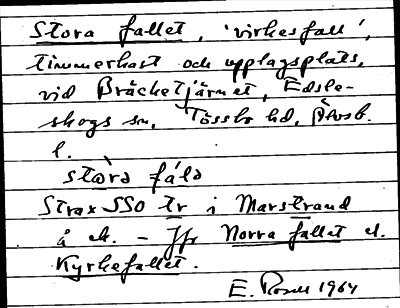 Stora fallet, 'virkesfall',
timmerkast och upplagsplats,
vid Bräcketjärnet, Edsle-
skogs sn, Tössbo hd, Älvsb.
l.
stòra fálə
Strax SSO tr i Marstrand
å ek. – Jfr Norra fallet o.
Kyrkefallet.
E. Rosell 1964